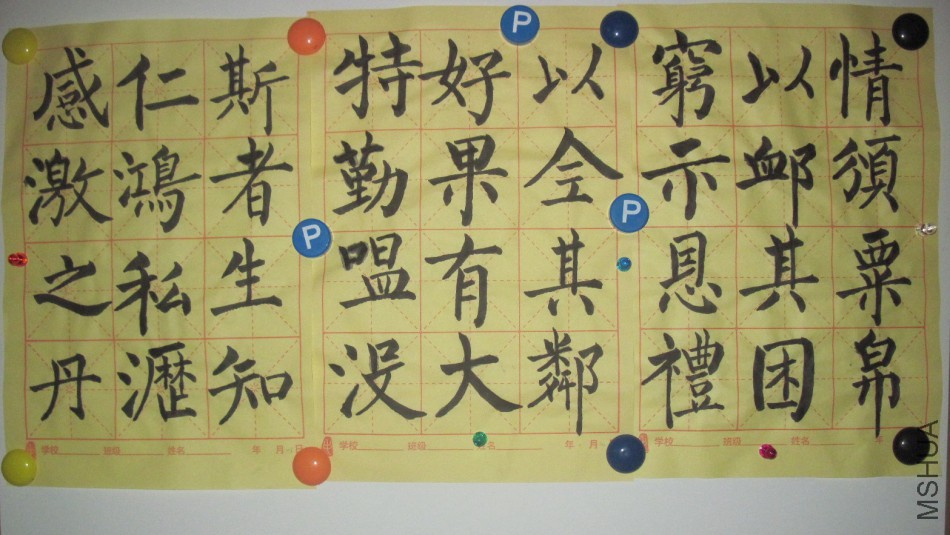 情須粟帛
以卹其困
窮示恩禮
以仝其鄰
好果有大
特勤嗢沒
斯者生知
仁鴻私瀝
感激之丹
学校 班级 姓名 年 月 日
学校 班级 姓名 年 月
学校 班级 姓名 年
P
P
P
MSHUA